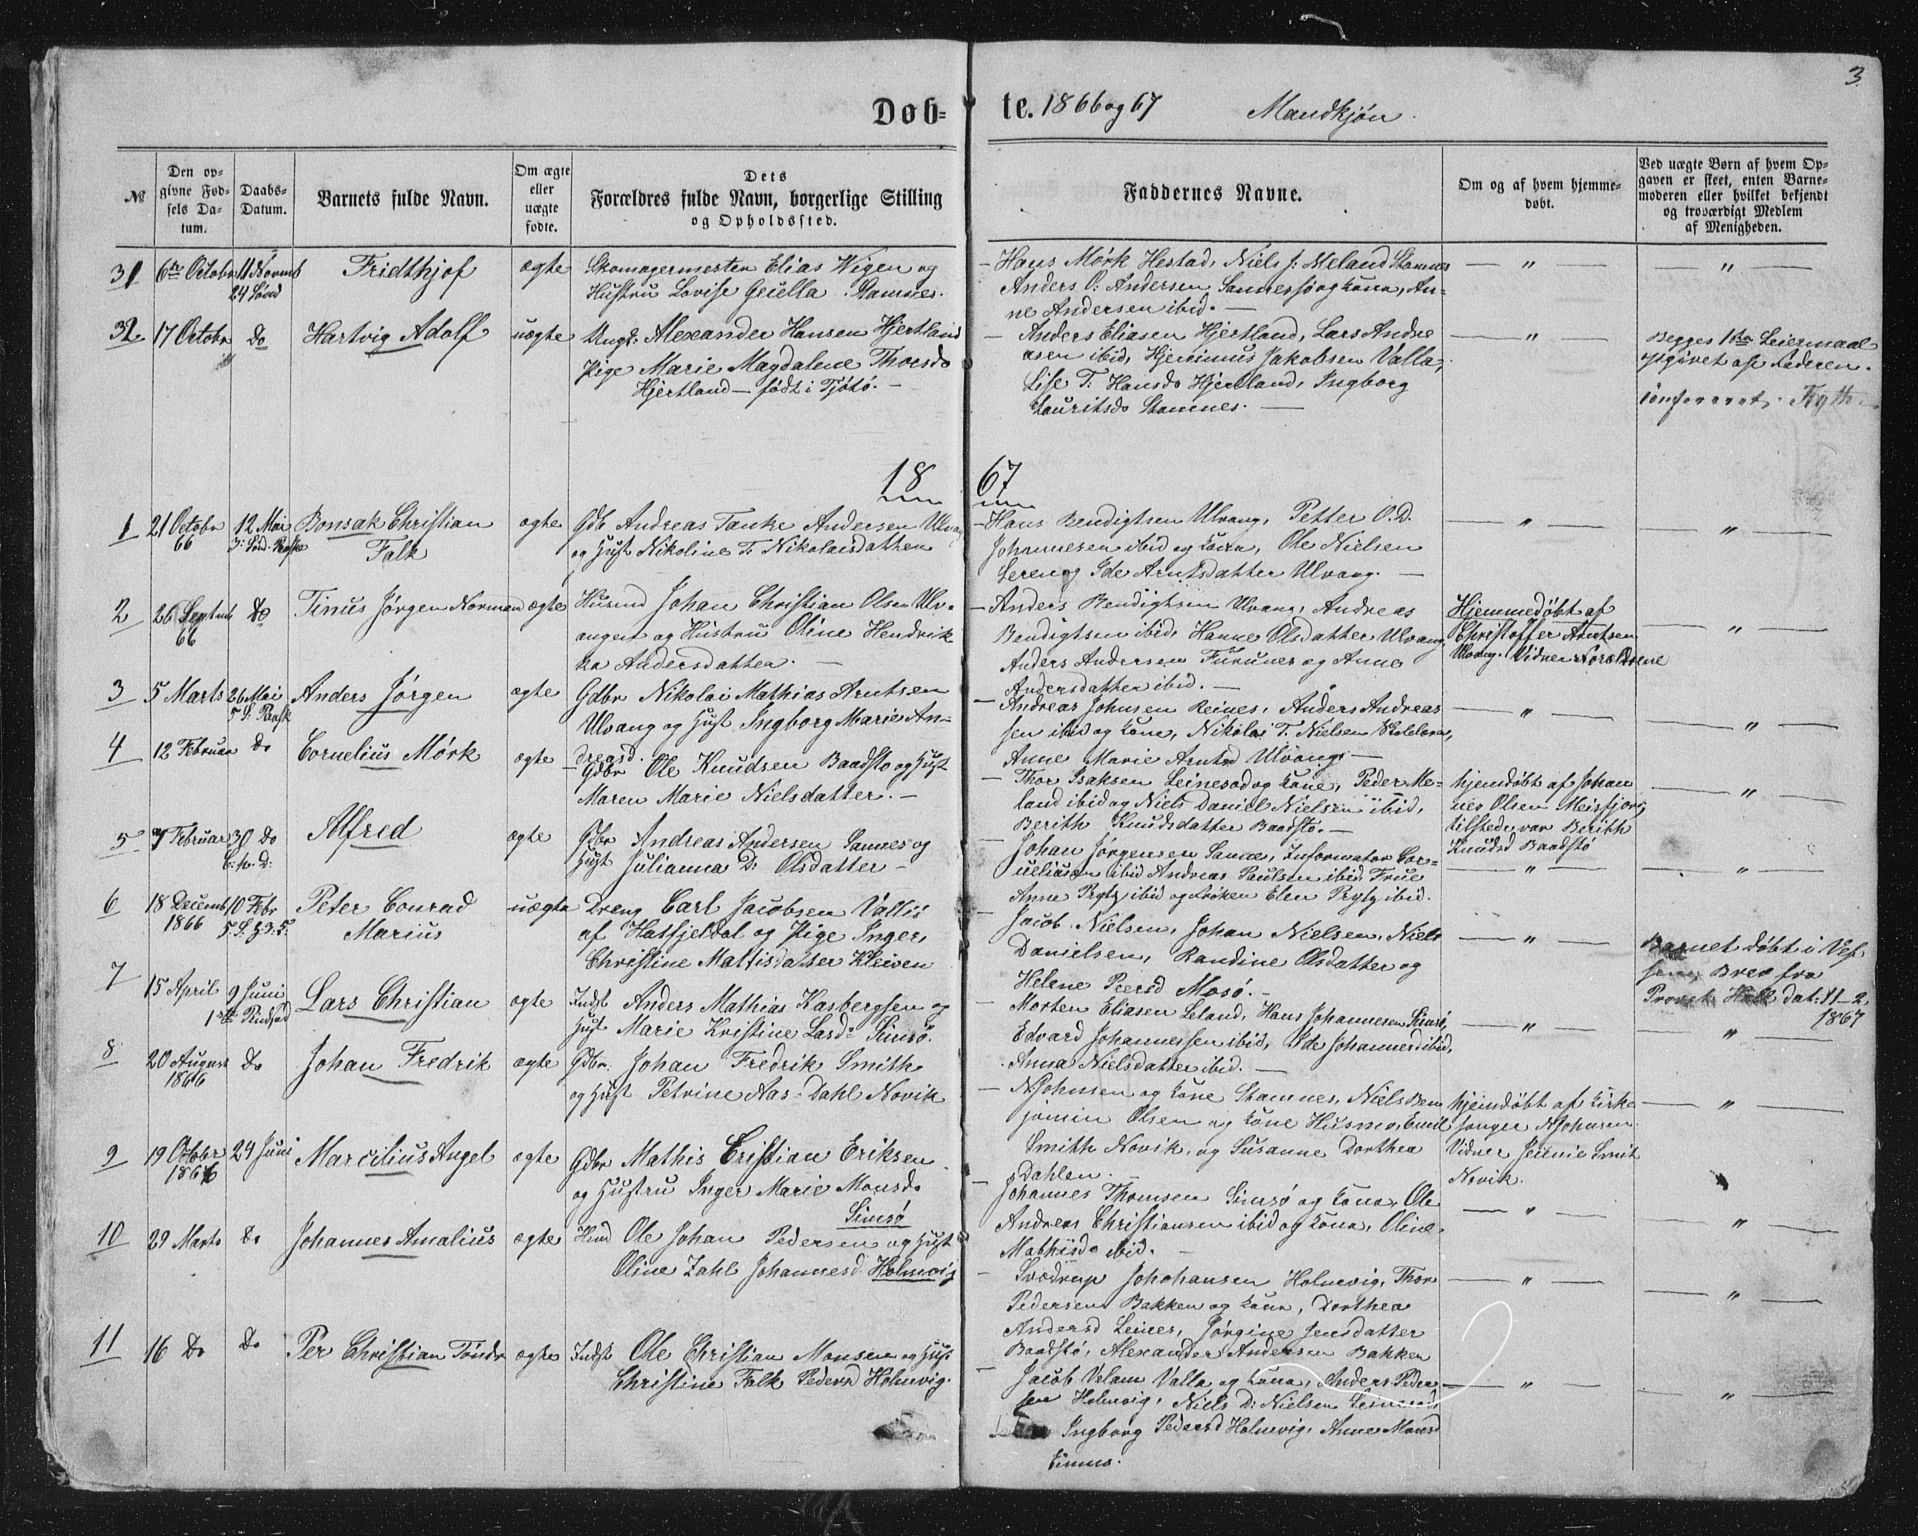 3
Døb-te. 1866 og 67 Mandkjøn.
№
Den opgivne Fødsels Datum.
Daabs-Datum.
Barnets fulde Navn.
Om ægte eller uægte fødte.
Dets Forældres fulde Navn, borgerlige Stilling og Opholdssted.
Faddernes Navne.
Om og af hvem hjemmedøbt.
Ved uægte Børn af hvem Opgaven er skeet, enten Barnemoderen eller hvilket bekjendt og troværdigt Medlem af Menigheden.
31 6te Octobr 11 Novmb Fridthjof ægte Skomagermester Elias Wigen og
24 Sønd Hustru Lovise Stamnes.
— Hans Mörk Hestad, Niels J: Meland Stamnes — „ — — „ —
Anders O: Andersen Sannessjø og Kone, An-
ne Andersen ibid. —
32 17 Octobr do Hartvig Adolf uægte Ungk: Alexander Hansen Hjertland
Pige Marie Magdalene Thoesd
Hjertland — født i Tjötö. —
— Anders Eliasen Hjertland, Lars Andre
asen ibid, Hjeronimus Jakobsen Valla,
Lise T: Hansd Hjertland, Ingborg
Lauritsd Stamnes. —
— „ — Begges 1ste Leiermaal
opgivet af Faderen.
1867
1 21 Octobr 12 Mai Bonsak Christian ægte Gdb Andreas Tanke Andersen Ulvang
66 3: Sød. Paaske Falk og Hust Nikoline T: Nikolaisdatter
— Hans Bendigtsen Ulvang, Petter O. D. — „ — „
Johannesen ibid og Kone, Ole Nielsen
Leren og Ide Arntsdatter Ulvang. —
2 26 Septmb do Tinus Jørgen Norman ægte Husmd Johan Christian Olsen Ulv-
66 angen og Hustru Oline Hendrik
ka Andersdatter. —
— Anders Bendigtsen Ulvang, Andreas
Bendigtsen ibid, Hanne Olsdatter Ulvang
Anders Andersen Furunes og Anne
Andersdatter ibid. —
Hjemmedøbt af
Christoffer Arntsen
Ulvang. Vidner Forældrene
— „ —
3 5 Marts 26 Mai Anders Jørgen ægte Gdbr Nikolai Mathias Arntsen
5 S: Paask Ulvang og Hust Ingborg Marie An-
dreasd.
— Andreas Johnsen Reines, Anders Andreas — „ — — „ —
sen ibid og Kone, Nikolai T. Nielsen
Anne Marie Arntsd Ulvang —
4 12 Februar do Cornelius Mørk ægte Gdbr Ole Knudsen Baadstø og Hust
Maren Marie Nielsdatter. —
— Thor Isaksen Leinesod og Kone, Peder Me-
land ibid og Niels Daniel Nielsen ibid,
Berith Knudsdatter Baadstø. —
hjemdøbt af Johan
nes Olsen Meisfjord,
tilstede var Berith
Knudsd Baadstø
— „ —
5 7 Februar 30 do Alfred ægte Gdbr Andreas Andersen Sannes og
C: h. D: Hust Julianna D: Olsdatter —
Johan Jørgensen Sannes, Informator Cor-
nelius ibid Andreas Paulsen ibid, Frue — „ — — „ —
Anne Prytz ibid og Frøken Elen Prytz ibid.
6 18 Decemb 10 Febr Peter Conrad uægte Dreng Carl Jacobsen Vallis
1866 Marius af Hatfjeldal og Pige Inger,
Christine Mattisdatter Kleiven
— Jacob Nielsen, Johan Nielsen, Niels — „ —
Danielsen, Randine Olsdatter og
Helene Peersd Mosö. —
Barnet døbt i Vef
sen, Brev fra
Provst dat: 11–2
1867
7 15 April 9 Juni Lars Christian ægte Indst Anders Mathias Kasbergsen og
1ste Pindsed Hust Marie Kristine Larsd Simsö.
— Morten Eliasen Leland, Hans Johannesen Simsö, — „ — „
Edvard Johannessen ibid, Ide Johannesd ibid,
Anna Nielsdatter ibid. —
8 20 August do Johan Fredrik ægte Gdbr Johan Fredrik Smith
1866 og Hust Petrine Aas-Dahl Novik
— N Johnsen og Kone Stamnes, Niels Ben
jamin Olsen og Kone Husmo, Emil
Smith Novik, og Susanne Dorthea
Dahlen.
hjemdøbt af Kirke
sanger N Johnsen.
Vidner Jennie Smit
Novik.
— „ —
9 19 Octobr 24 Juni Marcilius Angel ægte Gdbr Mathis Cristian Eriksen
1866 og Hustru Inger Marie Monsd
Simsö
— Johannes Thomsen Simsö og Kone, Ole — „ — „
Andreas Christiansen ibid og Kone, Oline
Mathisd ibid. —
10 29 Marts do Johannes Amalius ægte Hmd Ole Johan Pedersen og Hust
Oline Zahl Johannesd Holmvig
— Johansen Holmvig, Thor — „ — — „ —
Pedersen Bakken og Kone, Dorthea
Andersd Leines, Jørgine Jensdatter
Baadstø, Alexander Andersen Bakken
11 16 do do Per Christian Tönder ægte Indst Ole Christian Monsen og Hust
Christine Falk Pedersd Holmvig.
— Jacob Velam Valla og Kone, Anders Peder — „ — — „ —
sen Holmvig, Niels D: Nielsen
Ingborg Pedersd Holmvig, Anne Monsd